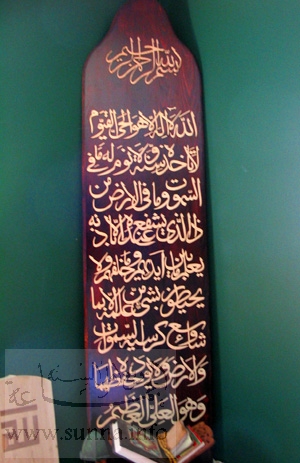 بسم الله الرحمن الرحيم
الله لا إله إلا هو الحي القيوم
لا تأخذه سنة ولا نوم له ما في
السموت وما في الارض من
ذا الذي يشفع عنده إلا باذنه
يعلم ما بين ايديهم وما خلفهم ولا
يحيطون بشيء من علمه إلا بما
شاء وسع كرسيه السموت
والارض ولا يؤده حفظهما
وهو العلي العظيم
www.sunna.info